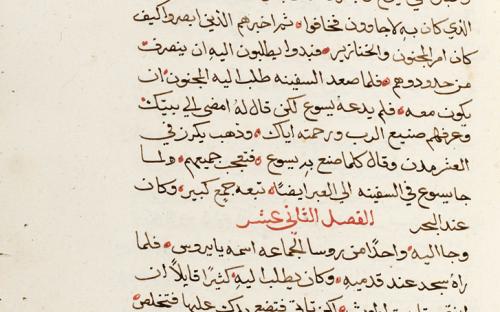 الذي كان به لاجاوون فخافوا ثم اخبرهم الذين ابصروا كيف
كان امر المجنون والخنازير فبدوا يطلبون اليه ان ينصرف
من حدودهم فلما صعد السفينه طلب اليه المجنون ان
يكون معه فلم يدعه يسوع لكن قال له امضي الي بيتك
وعرفهم صنيع الرب ورحمته اياك وذهب يكرز في
العشر مدن وقال كلما صنع به يسوع فتعجب جميعهم ولما
جا يسوع في السفينه الي العبر ايضًا تبعه جمع كبير وكان
عند البحر الفصل الثاني عشر
وجا اليه واحدًا من روسا الجماعه اسمه يايروس فلما
راه سجد عند قدميه وكان يطلب اليه كثيرًا قايلًا ان
لكن تاتي فتضع يدك عليها فتخلص